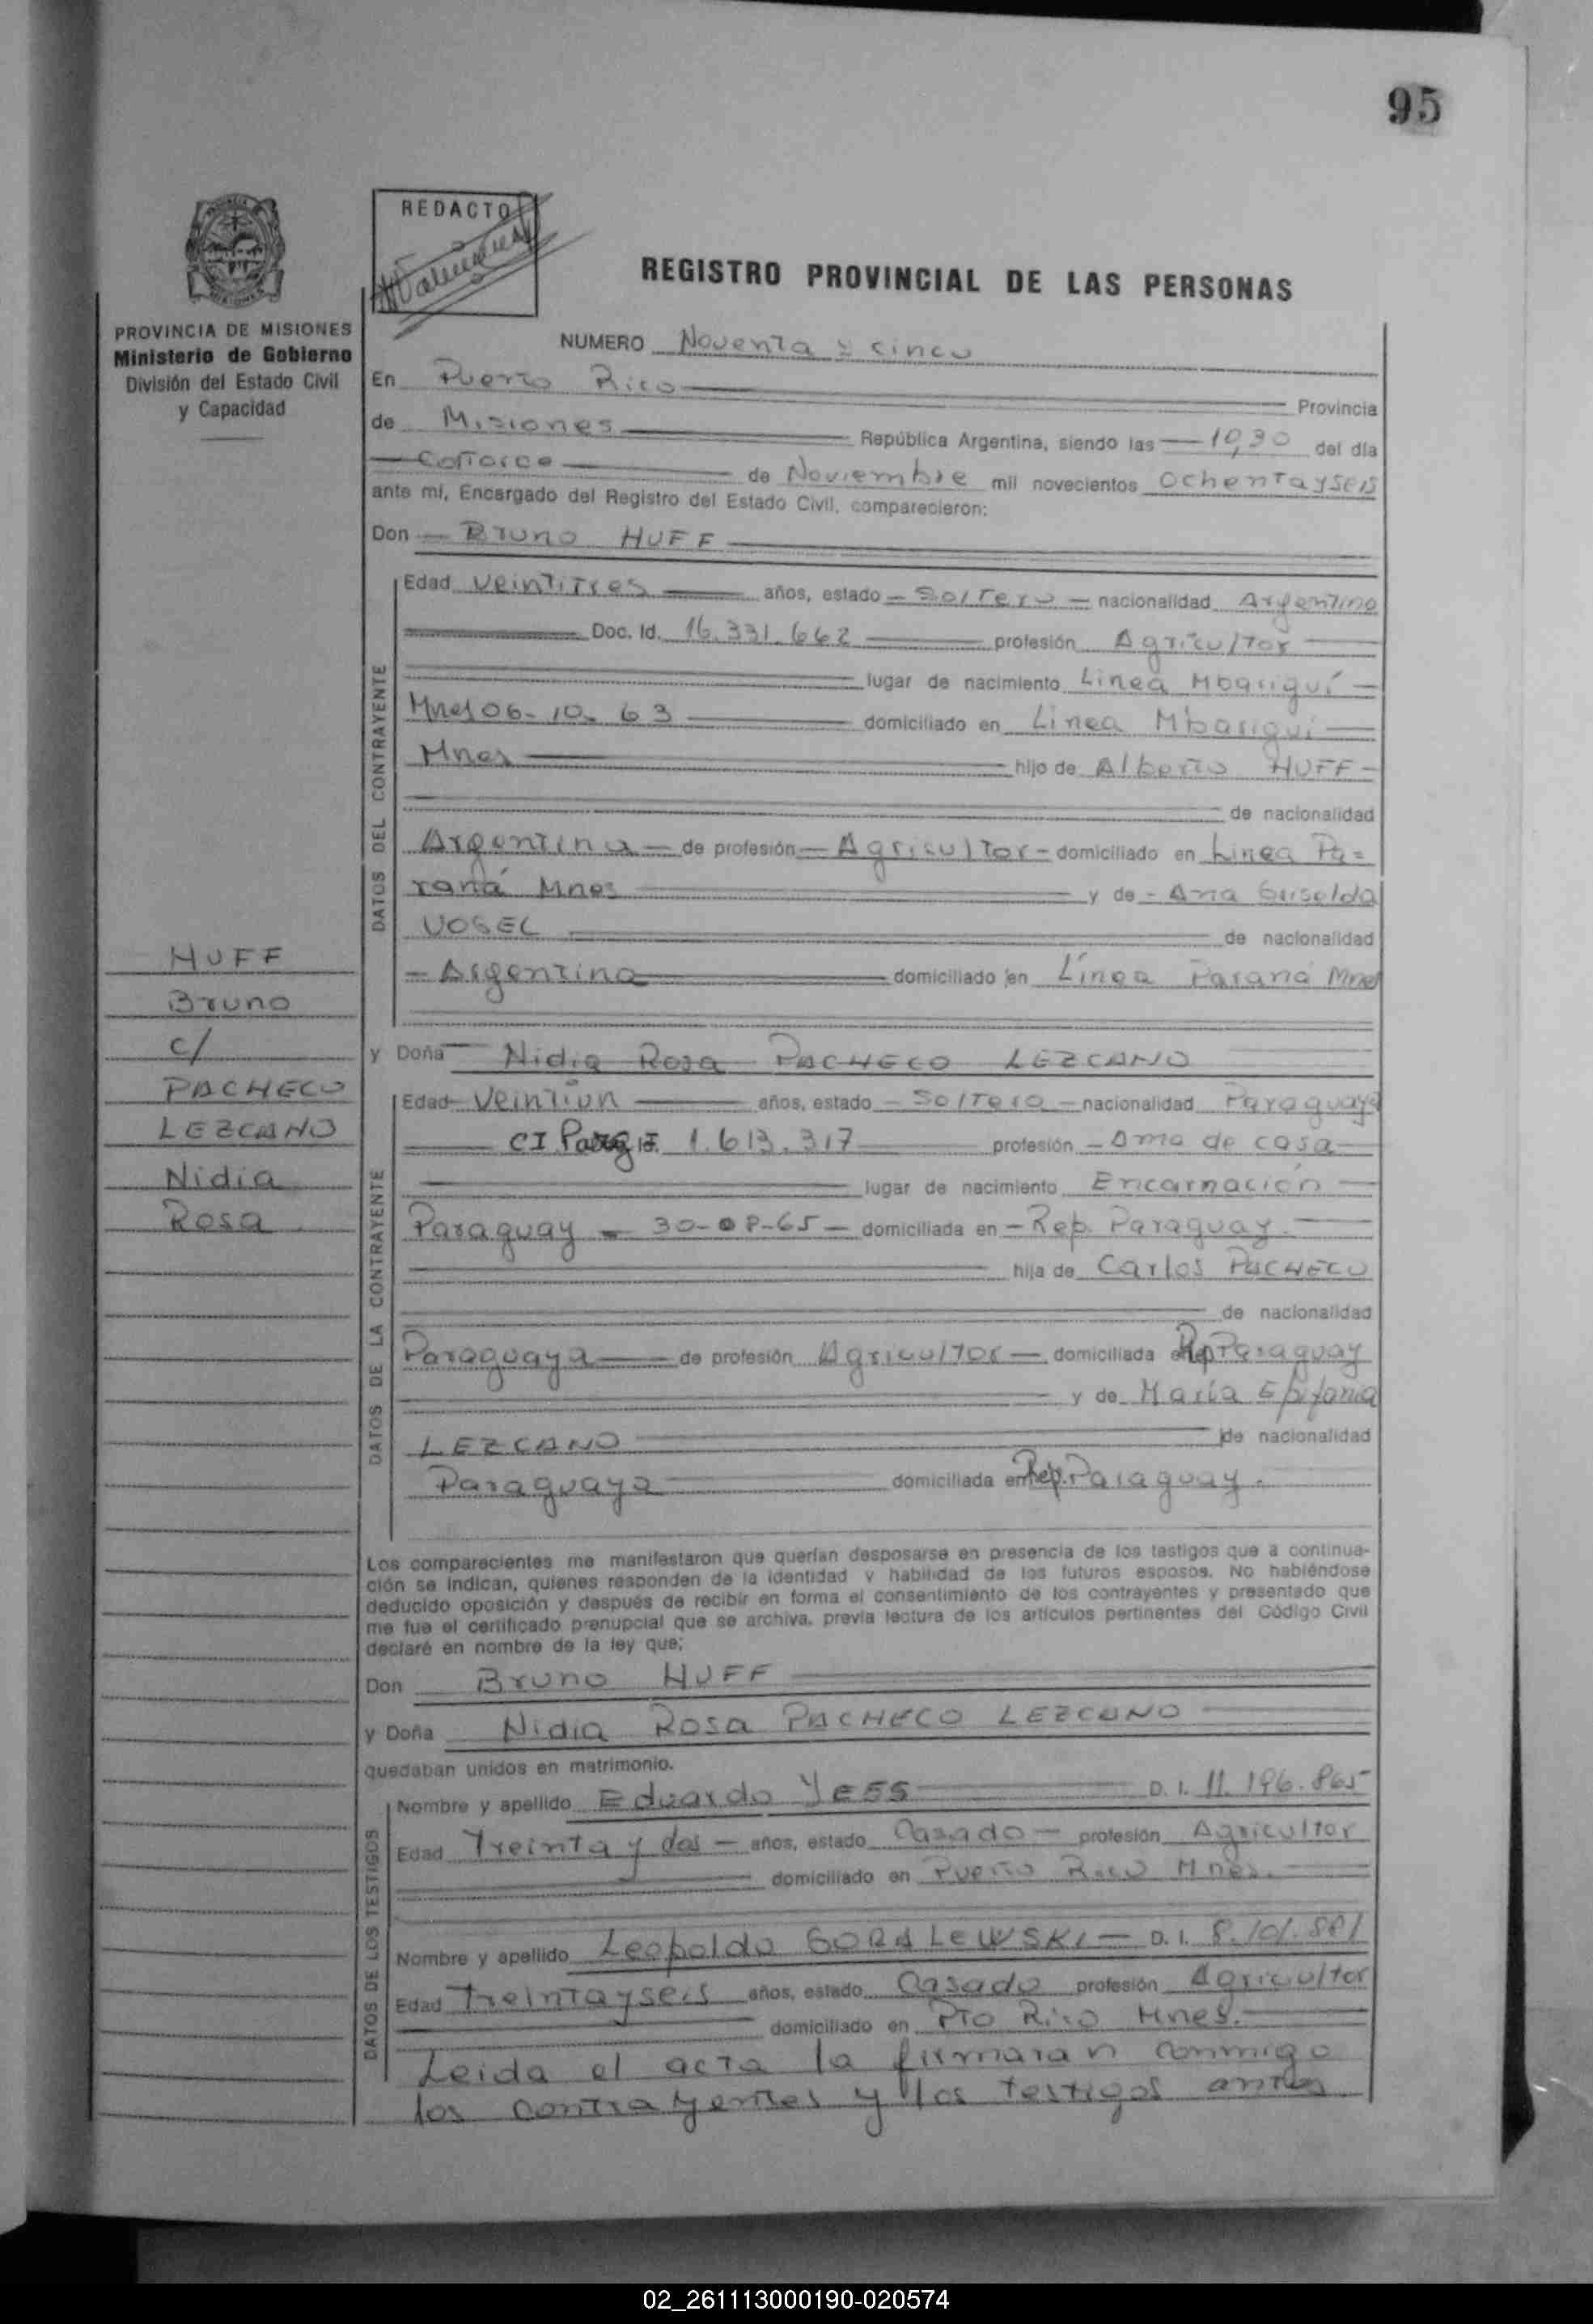 95
REDACTO
REGISTRO PROVINCIAL DE LAS PERSONAS
PROVINCIA DE MISIONES
Ministerio de Gobierno
División del Estado Civil
y Capacidad
NUMERO Noventa y cinco
En Puerto Rico Provincia
de Misiones República Argentina, siendo las 10,30 del día
Catorce de Noviembre mil novecientos ochentayseis
ante mí, Encargado del Registro del Estado Civil, comparecieron:
Don Bruno HUFF
DATOS DEL CONTRAYENTE
Edad veintitres años, estado Soltero nacionalidad Argentina
Doc. Id. 16.331.662 profesión Agricultor
lugar de nacimiento Linea Mbariguí
Mnes 06-10-63 domiciliado en Linea Mbarigui
Mnes hijo de Alberto HUFF
de nacionalidad
Argentina de profesión Agricultor domiciliado en Linea Pa=
raná Mnes y de Ana Griselda
VOGEL de nacionalidad
Argentina domiciliado en Línea Paraná Mnes
HUFF
Bruno
c/
PACHECO
LEZCANO
Nidia
Rosa
y Doña Nidia Rosa PACHECO LEZCANO
DATOS DE LA CONTRAYENTE
Edad Veintiun años, estado Soltera nacionalidad Paraguaya
CI. Parg 1.613.317 profesión Ama de casa
lugar de nacimiento Encarnación
Paraguay - 30-08-65 domiciliada en Rep. Paraguay
hija de Carlos PACHECO
de nacionalidad
Paraguaya de profesión Agricultor domiciliada en Rep Paraguay
y de María Epifania
LEZCANO de nacionalidad
Paraguaya domiciliada en Rep. Paraguay.
Los comparecientes me manifestaron que querían desposarse en presencia de los testigos que a continua-
ción se indican, quienes responden de la identidad y habilidad de los futuros esposos. No habiéndose
deducido oposición y después de recibir en forma el consentimiento de los contrayentes y presentado que
me fue el certificado prenupcial que se archiva, previa lectura de los artículos pertinentes del Código Civil
declaré en nombre de la ley que;
Don Bruno HUFF
y Doña Nidia Rosa PACHECO LEZCANO
quedaban unidos en matrimonio.
DATOS DE LOS TESTIGOS
Nombre y apellido Eduardo YESS D. I. 11.196.865
Edad Treinta y dos años, estado Casado profesión Agricultor
domiciliado en Puerto Rico Mnes.
Nombre y apellido Leopoldo GORALEWSKI D. I. 8.101.881
Edad Treintayseis años, estado Casado profesión Agricultor
domiciliado en Pto Rico Mnes.
Leida el acta la firmaran conmigo
los contrayentes y los testigos antes
02_261113000190-020574